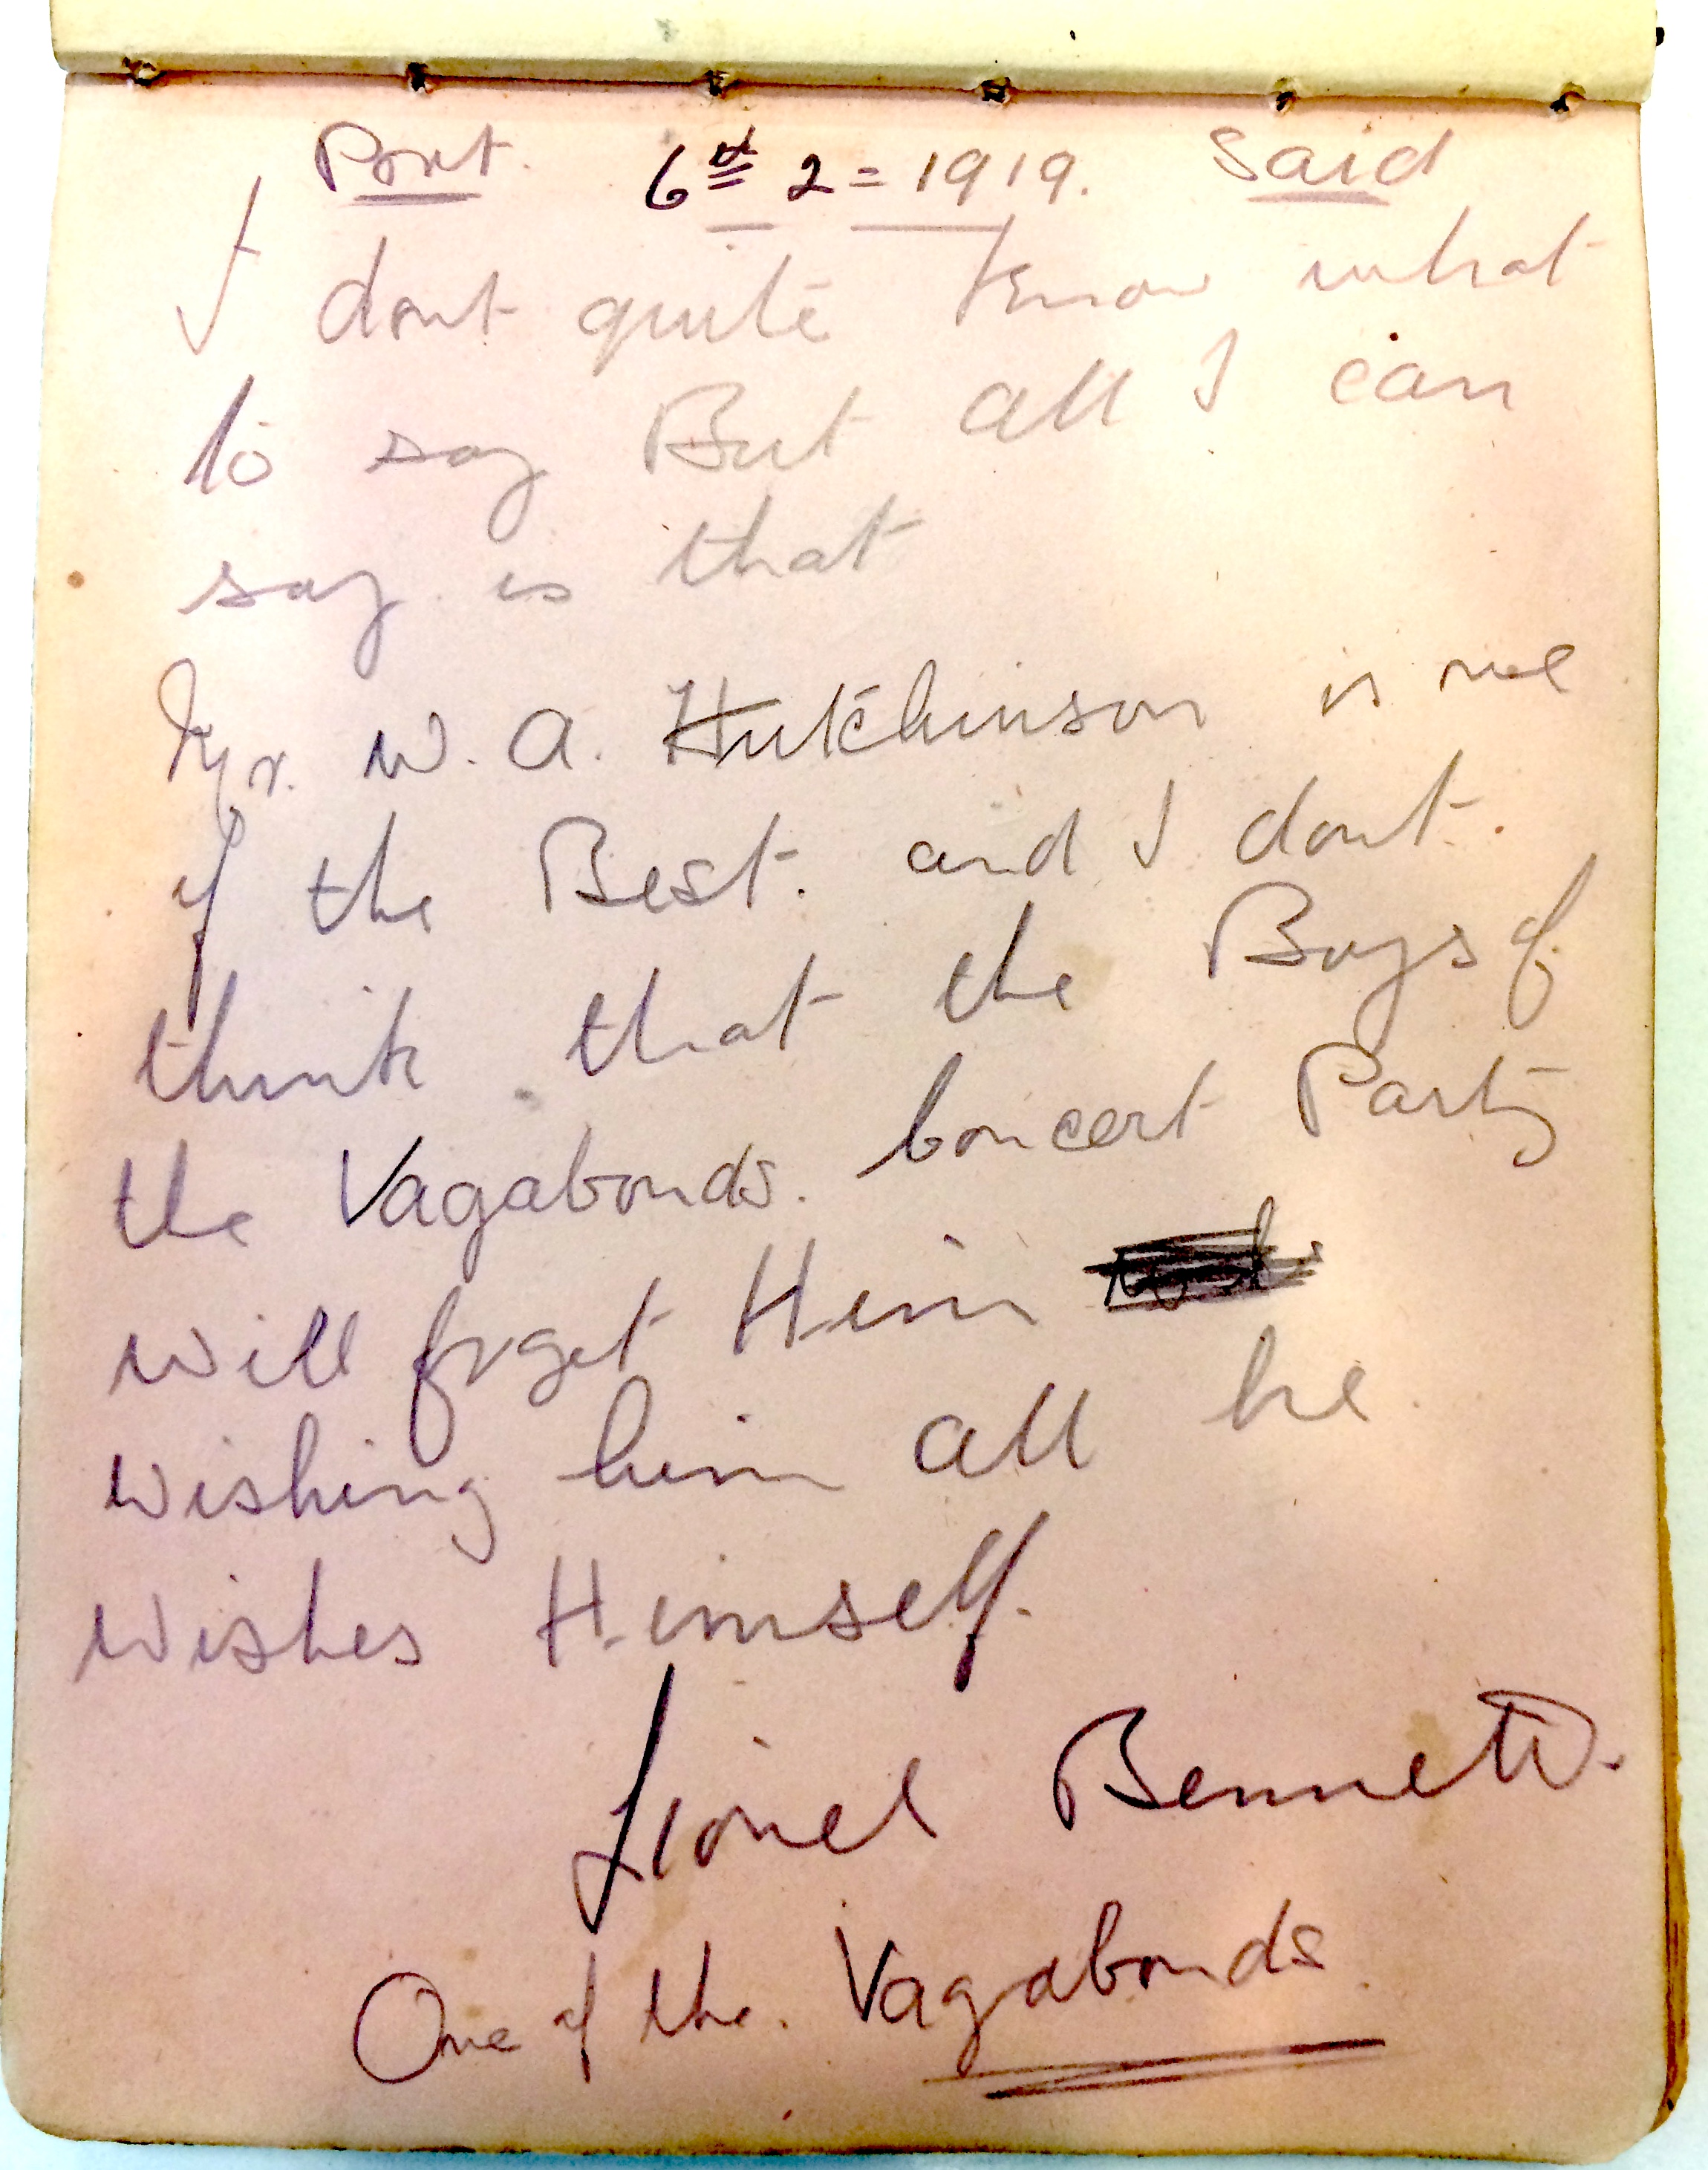 Port. 6th 2 = 1919. Said
I dont quite know what
to say But all I can
say is that
Mr. W. A. Hutchinson is one
of the Best. and I dont.
think that the Boys of
the Vagabonds. Concert Party
will forget Him
wishing him all he
wishes Himself.
Lionel Bennett.
One of the. Vagabonds